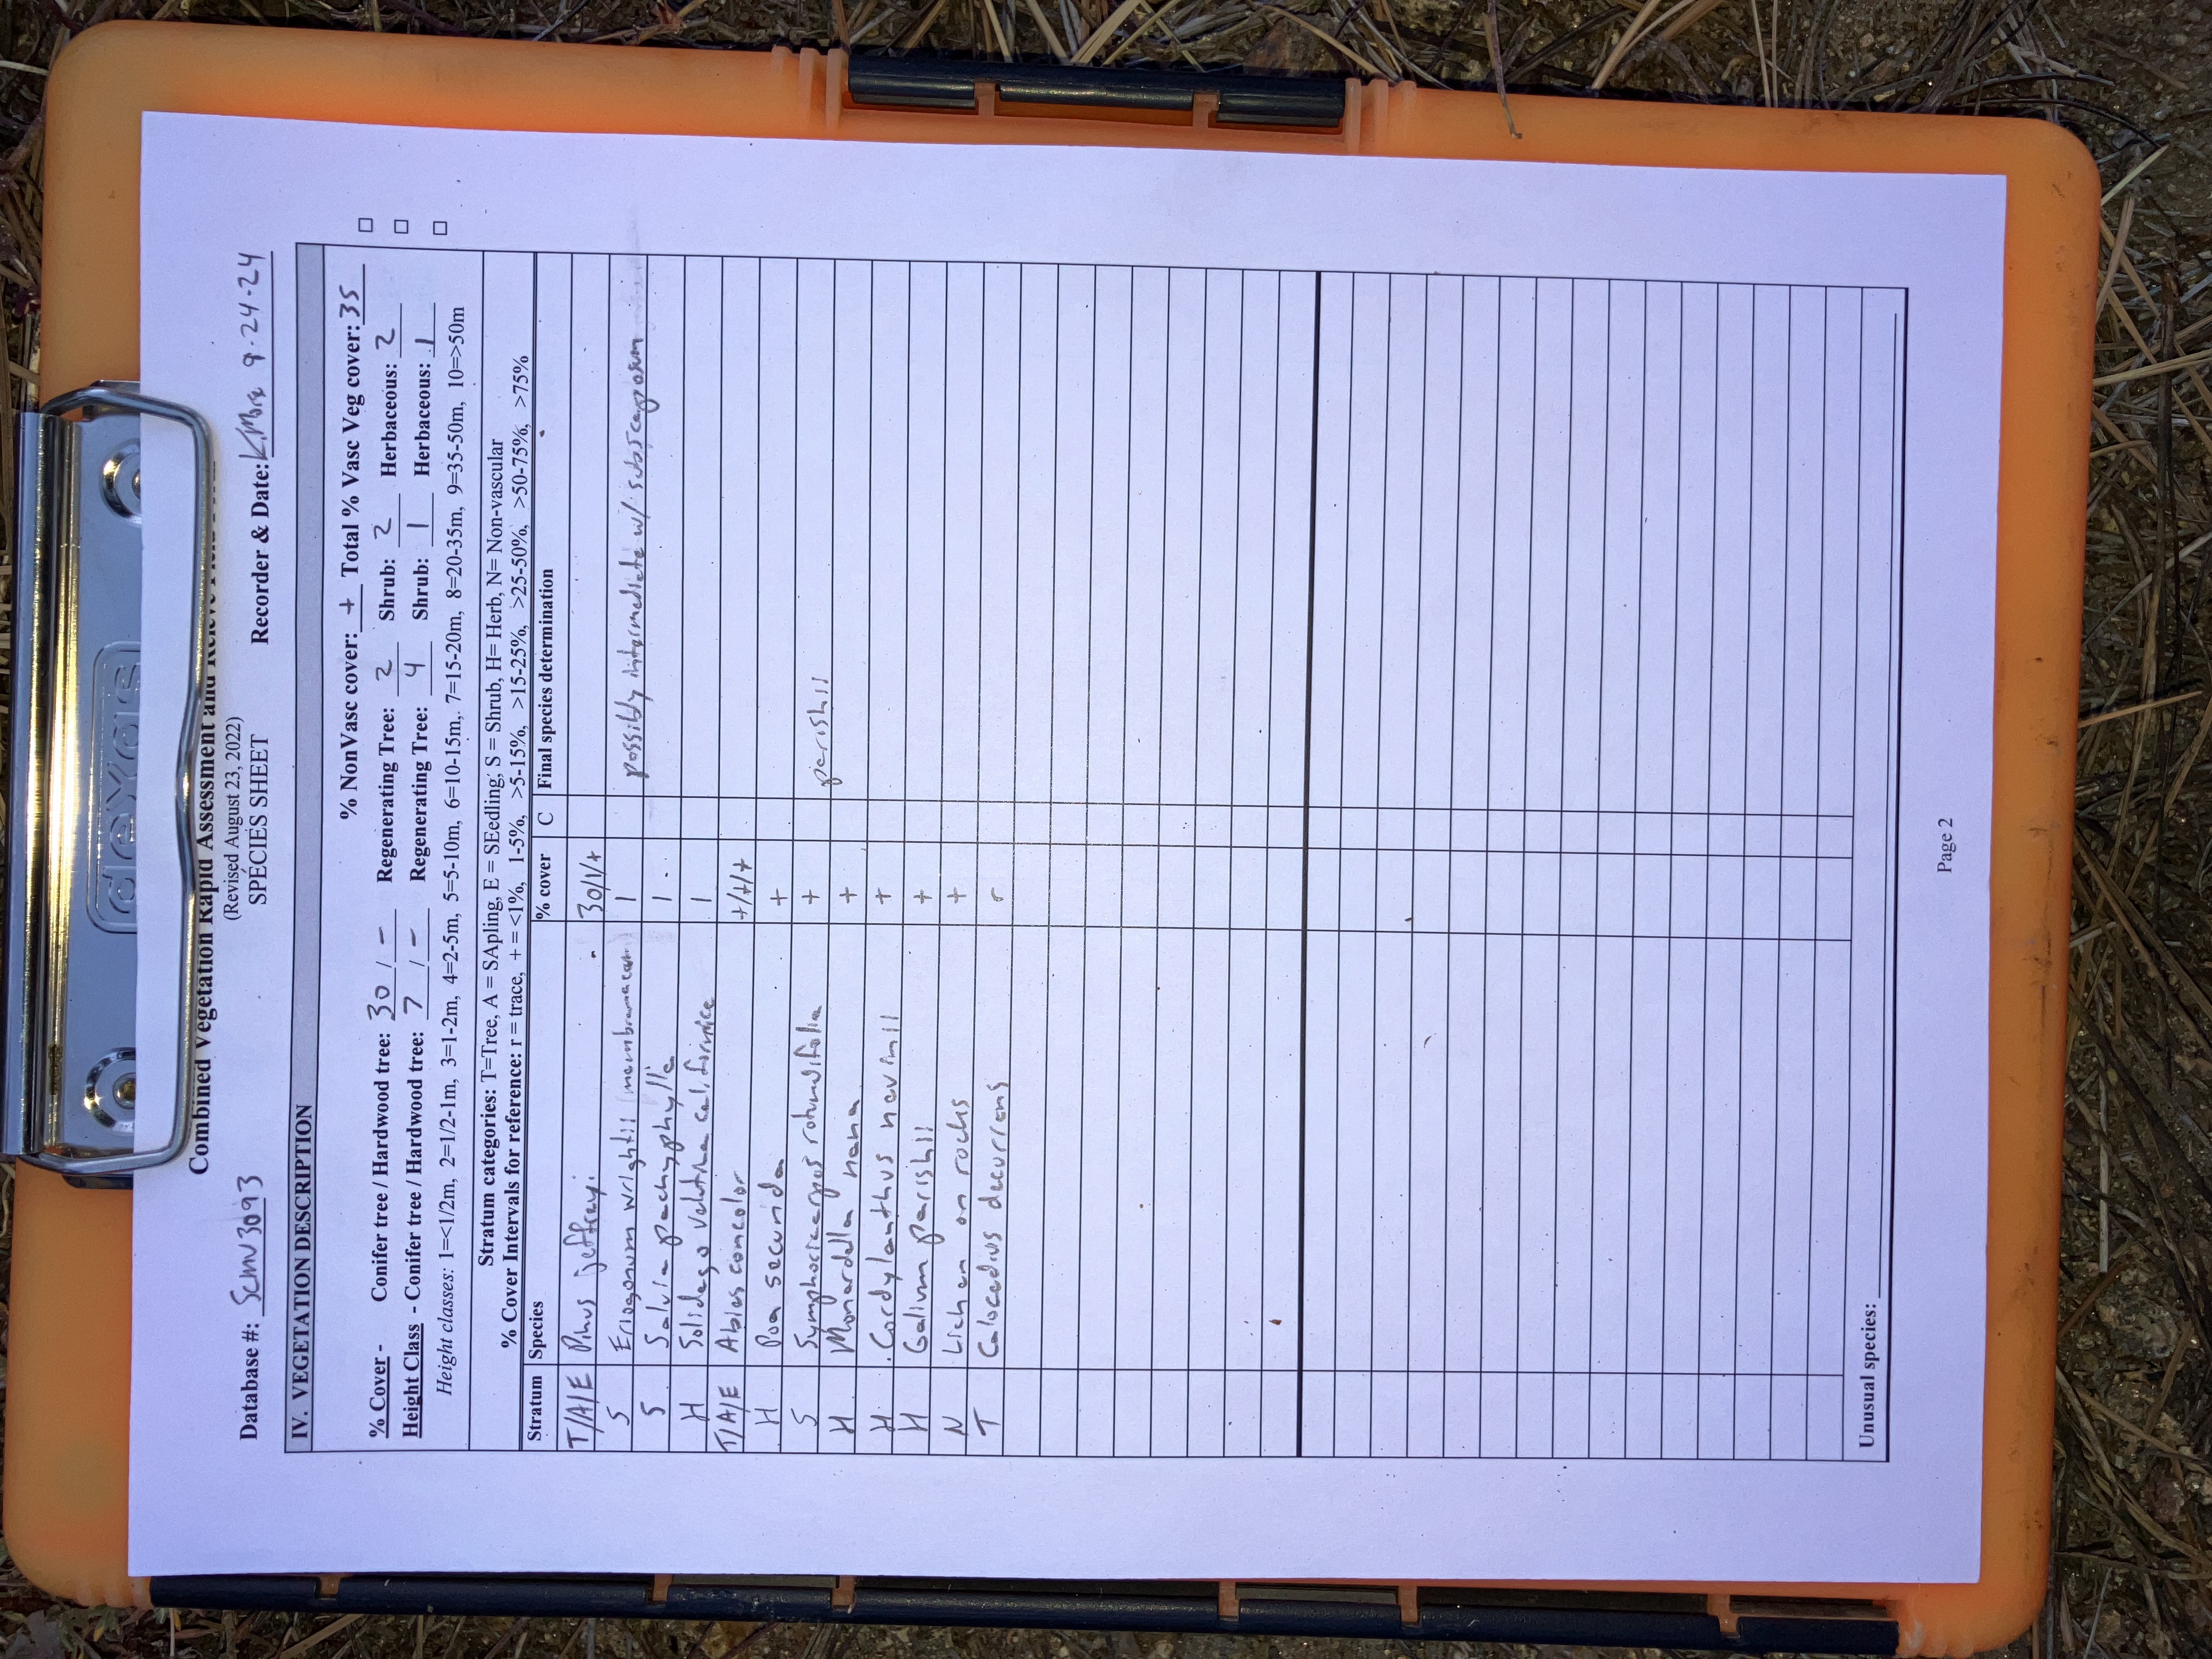 dexas
Combined Vegetation Rapid Assessment and
(Revised August 23, 2022)
SPECIES SHEET
Database #: SCMV3093 Recorder & Date: 9-24-24
IV. VEGETATION DESCRIPTION
% NonVasc cover: + Total % Vasc Veg cover: 35
% Cover - Conifer tree / Hardwood tree: 30 / - Regenerating Tree: 2 Shrub: 2 Herbaceous: 2
Height Class - Conifer tree / Hardwood tree: 7 / - Regenerating Tree: 4 Shrub: 1 Herbaceous: 1
Height classes: 1=<1/2m, 2=1/2-1m, 3=1-2m, 4=2-5m, 5=5-10m, 6=10-15m, 7=15-20m, 8=20-35m, 9=35-50m, 10=>50m
Stratum categories: T=Tree, A = SApling, E = SEedling, S = Shrub, H= Herb, N= Non-vascular
% Cover Intervals for reference: r = trace, + = <1%, 1-5%, >5-15%, >15-25%, >25-50%, >50-75%, >75%
Stratum Species % cover C Final species determination
T/A/E Pinus jeffreyi 30/1/+
S Eriogonum wrightii (membranaceum) 1 possibly intermediate w/ subscaposum
S Salvia pachyphylla 1
H Solidago velutina californica 1
T/A/E Abies concolor +/+/+
H Poa secunda +
S Symphoricarpos rotundifolia + parishii
H Monardella nana +
H Cordylanthus nevinii +
H Galium parishii +
N Lichen on rocks +
T Calocedrus decurrens r
Unusual species:
Page 2